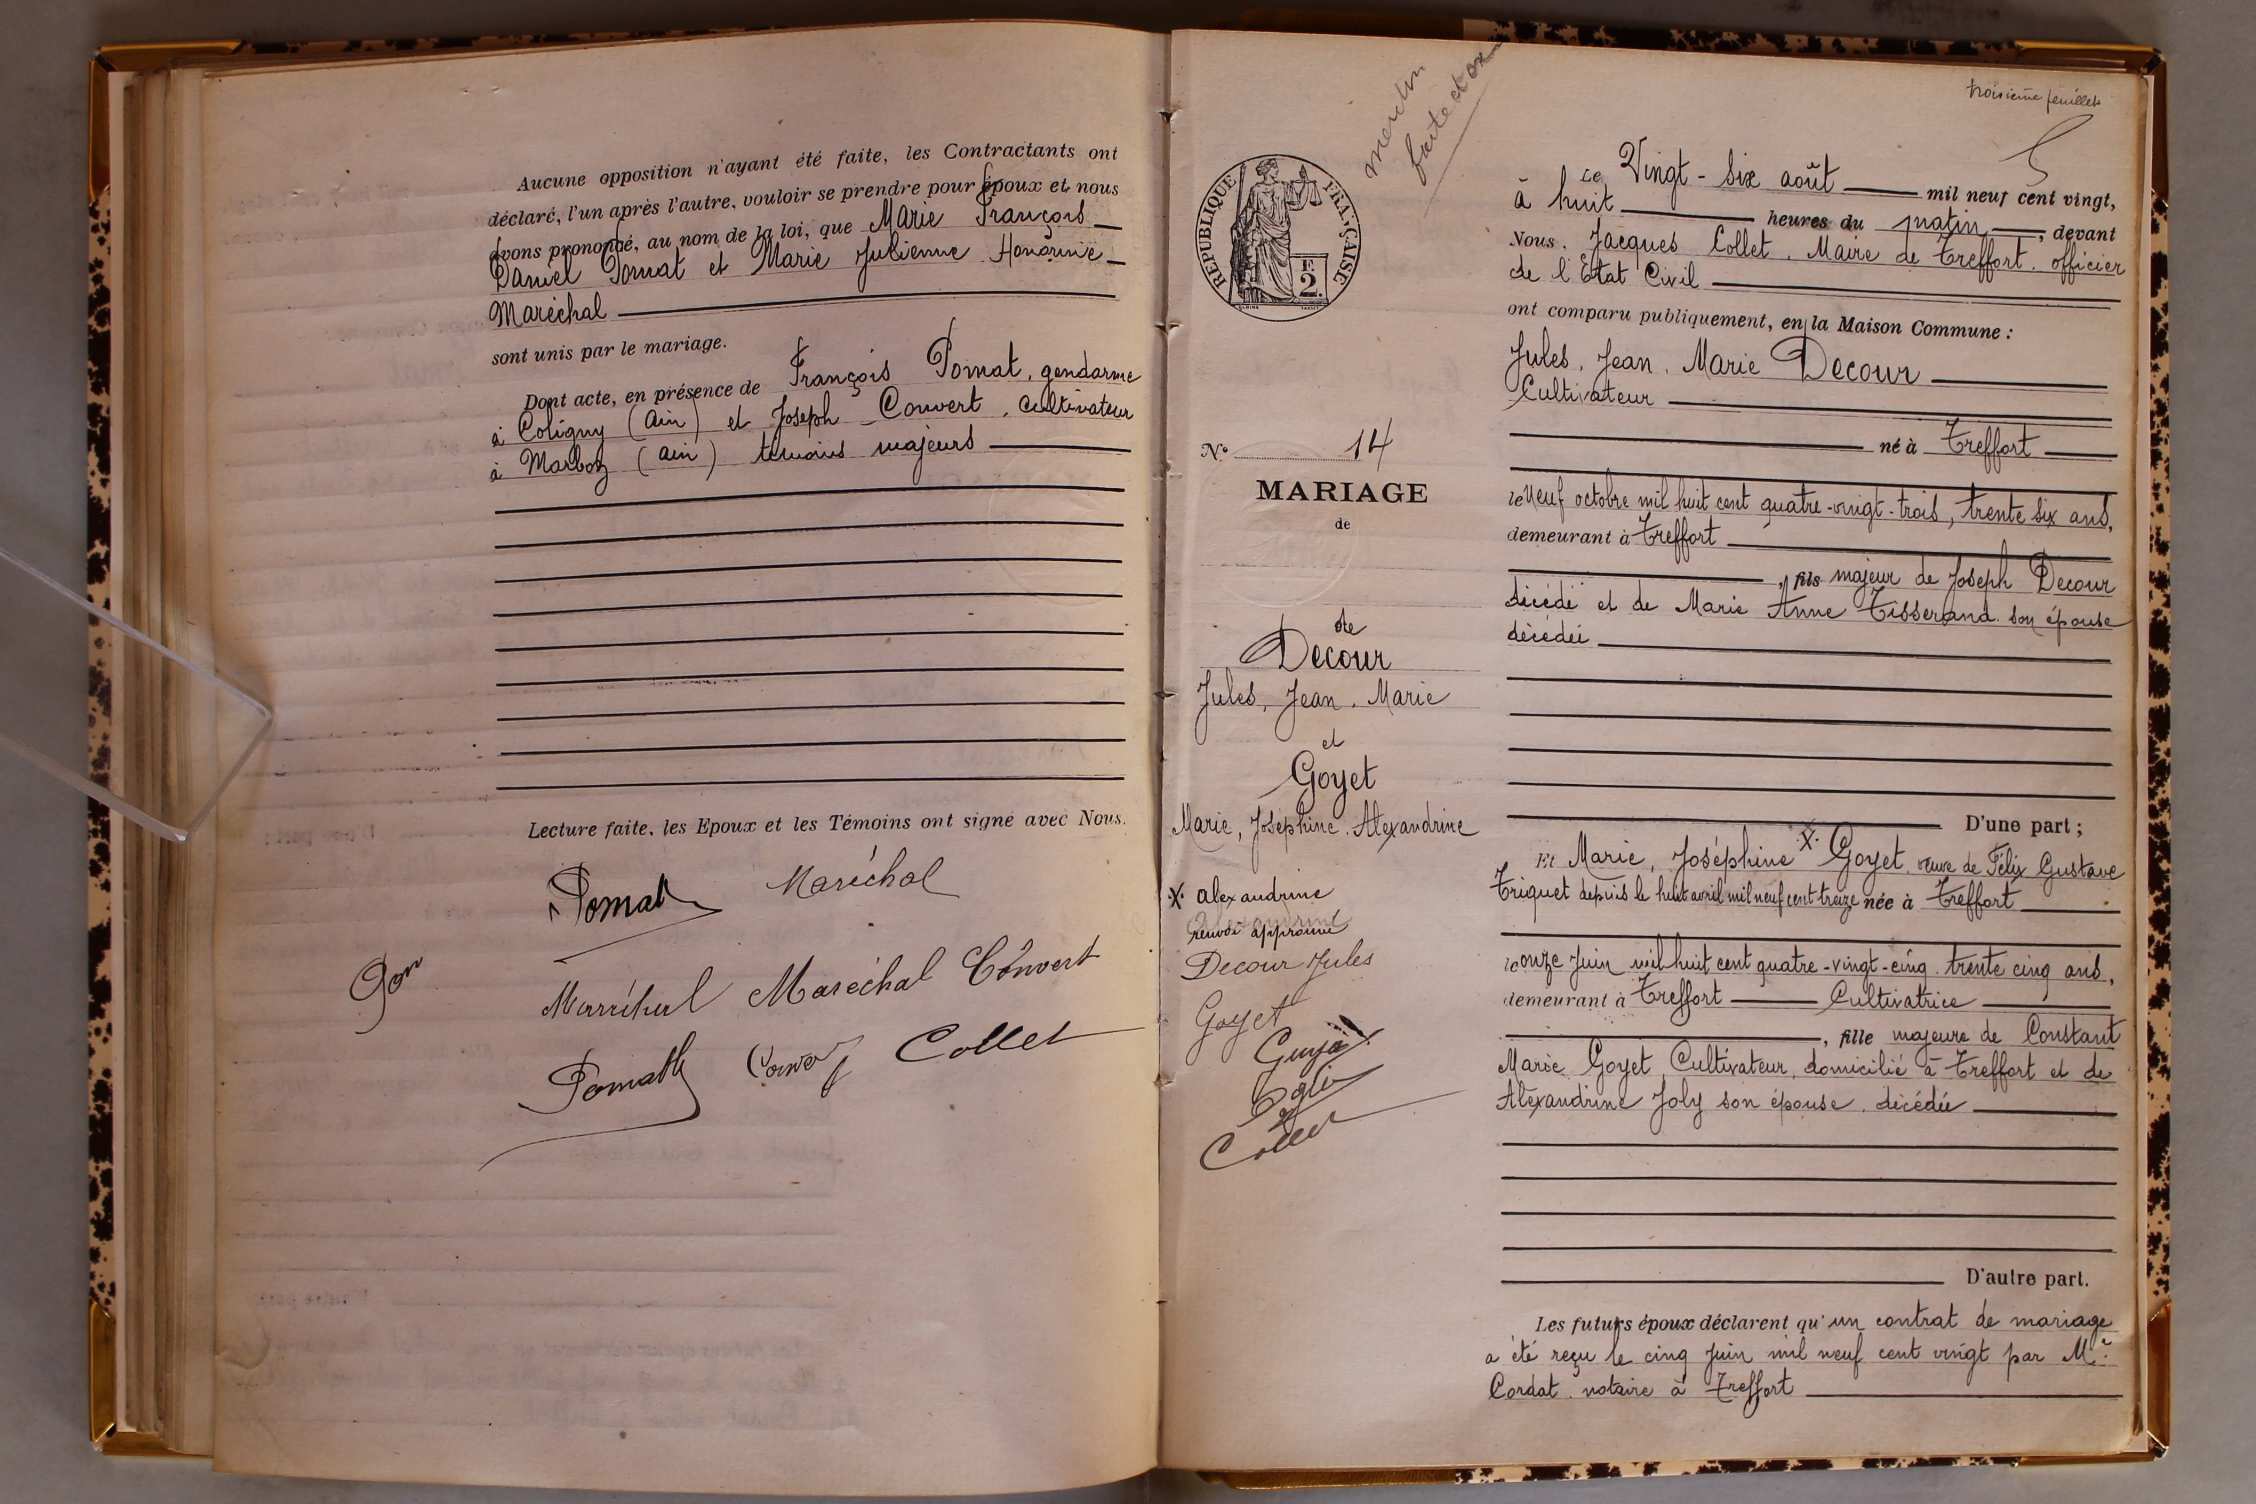 Aucune opposition n'ayant été faite, les Contractants ont
déclaré, l'un après l'autre, vouloir se prendre pour époux et nous
avons prononcé, au nom de la loi, que Marie François
Daniel Pomat et Marie Julienne Honorine
Maréchal
sont unis par le mariage.
Dont acte, en présence de François Pomat, gendarme
à Coligny (Ain) et Joseph Convert, cultivateur
à Marboz (Ain) témoins majeurs
Lecture faite, les Epoux et les Témoins ont signé avec Nous.
Pomat Maréchal
Maréchal Maréchal Convert
Pomath Collet
troisième feuillet
RÉPUBLIQUE FRANÇAISE
F.
2.
N° 14
MARIAGE
de
de
Decour
Jules, Jean, Marie
et
Goyet
Marie, Joséphine, Alexandrine
X. Alexandrine
renvoi approuvé
Decour Jules
Goyet
Collet
Le Vingt-six août mil neuf cent vingt,
à huit heures du matin, devant
Nous. Jacques Collet, Maire de Treffort, officier
de l'Etat Civil
ont comparu publiquement, en la Maison Commune :
Jules, Jean, Marie Decour
Cultivateur
né à Treffort
le Neuf octobre mil huit cent quatre-vingt-trois, trente six ans,
demeurant à Treffort
, fils majeur de Joseph Decour
décédé et de Marie Anne Tisserand son épouse
décédée
D'une part ;
Et Marie, Joséphine X. Goyet, veuve de Félix Gustave
Triquet depuis le huit avril mil neuf cent treize née à Treffort
le onze Juin mil huit cent quatre-vingt-cinq trente cinq ans,
demeurant à Treffort Cultivatrice
, fille majeure de Constant
Marie Goyet, Cultivateur, domicilié à Treffort et de
Alexandrine Joly son épouse, décédée
D'autre part.
Les futurs époux déclarent qu'un contrat de mariage
a été reçu le cinq Juin mil neuf cent vingt par Me.
Cordat, notaire à Treffort